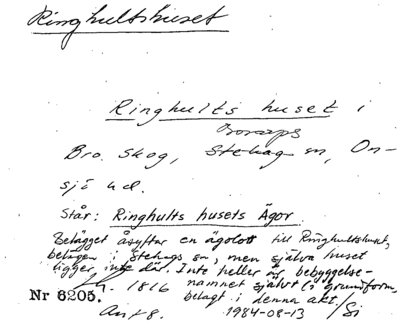 Ringhultshuset
Ringhults huset i
Bro. Skog, Stehag sn, On-
sjö hd.
Står: Ringhults husets Ägor
Belägget åsyftar en ägolott till Ringhultshuset,
belägen i Stehags sn, men själva huset
ligger inte där. Inte heller är bebyggelse-
namnet självt (i grundform)
Nr 6205. 1816 belagt i denna akt.
Ant 8. 1984-08-13 / Si